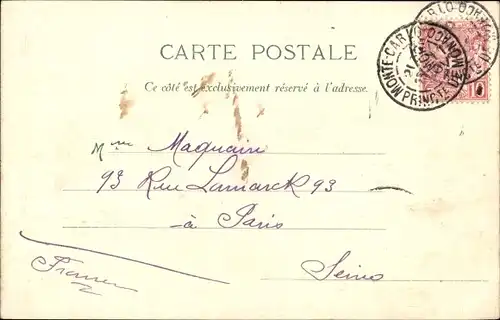 CARTE POSTALE
Ce côté est exclusivement réservé à l'adresse.
MONTE-CARLO
PRINCTE DE MONACO
Mme Maquaire
93 Rue Lamarck 93
à Paris
Seine
France